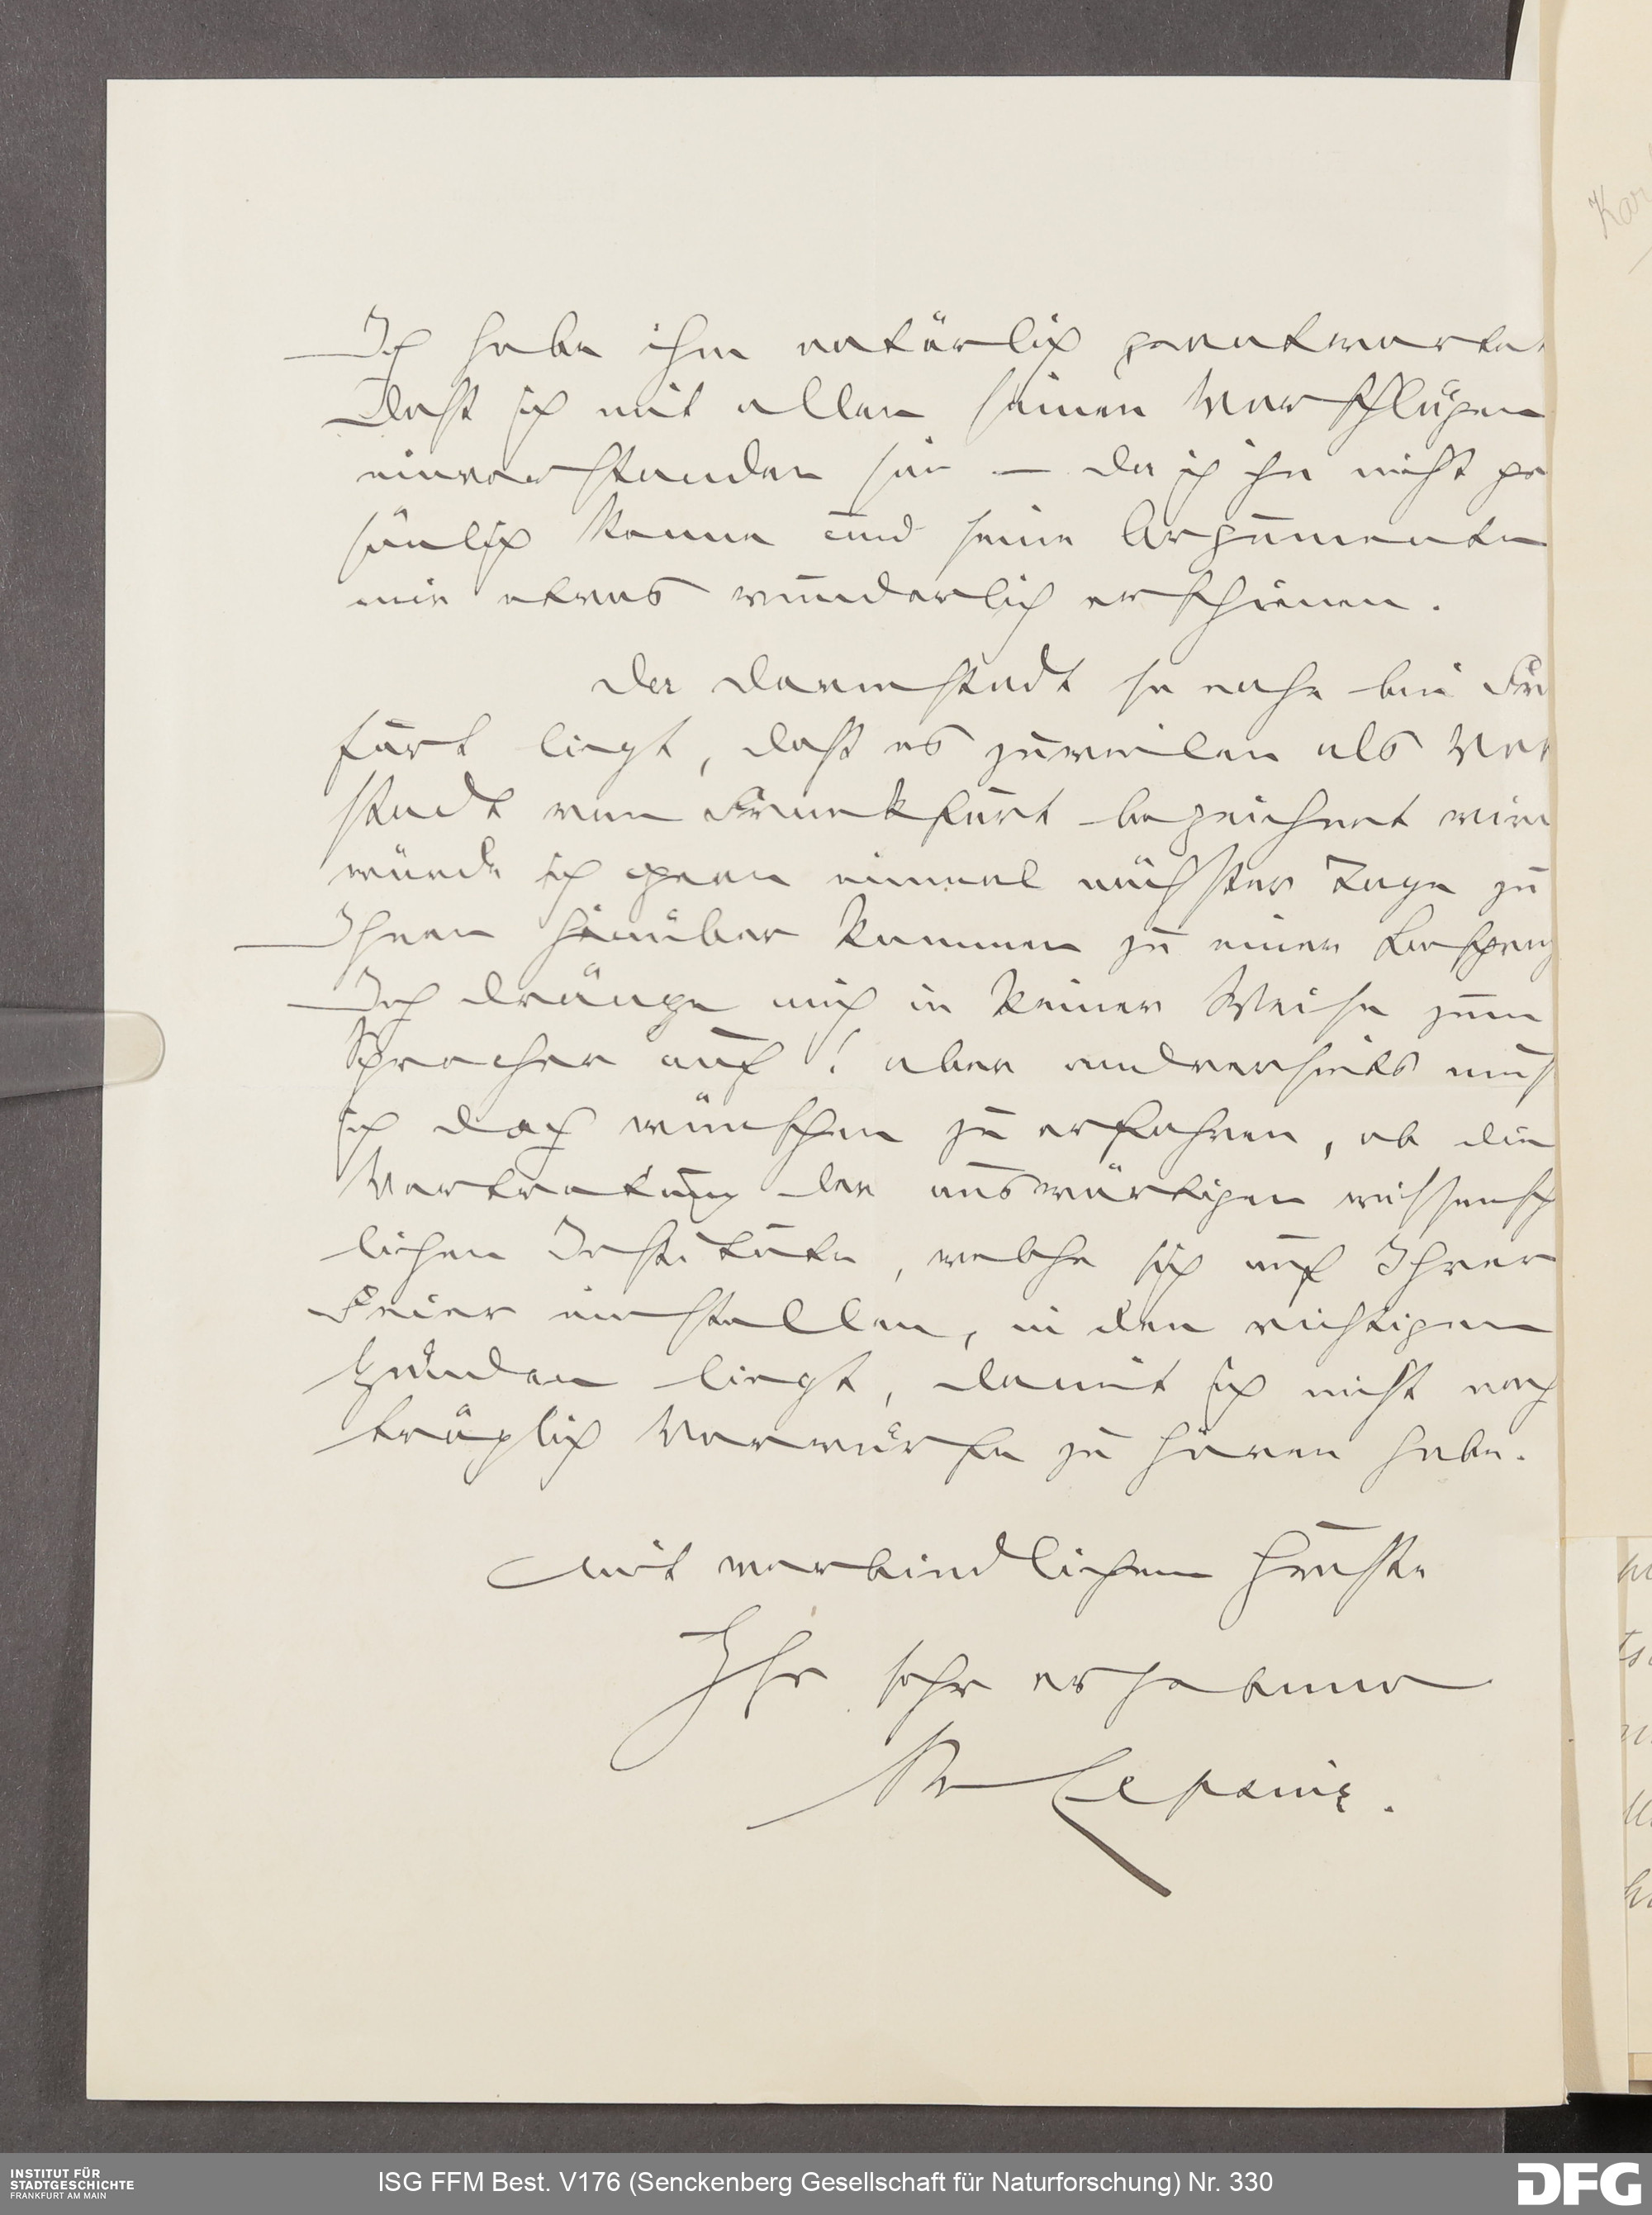 Ich habe ihm natürlich geantwortet
Dass ich mit allen seinen Vorschlägen
einverstanden sei — da ich ihn nicht per
sönlich kenne und seine Argumente
mir etwas wunderlich erschienen.
Da Darmstadt so nahe bei Fra
furt liegt, dass es zuweilen als Vor
stadt von Frankfurt bezeichnet wird
würde ich gern einmal nächster Tage zu
Ihnen hinüber kommen zu einer Besprech
Ich dränge mich in keiner Weise zum
Sprecher auf! aber andrerseits muß
ich doch wünschen zu erfahren, ob die
Vertretung der auswärtigen wissensch
lichen Institute, welche sich auf Ihrer
Feier einstellen, in den richtigen
Händen liegt, damit ich nicht nach
träglich Vorwürfe zu hören habe.
Mit verbindlichem Gruße
Ihr sehr ergebener
R Lepsius.
Kar
INSTITUT FÜR
STADTGESCHICHTE
FRANKFURT AM MAIN
ISG FFM Best. V176 (Senckenberg Gesellschaft für Naturforschung) Nr. 330
DFG